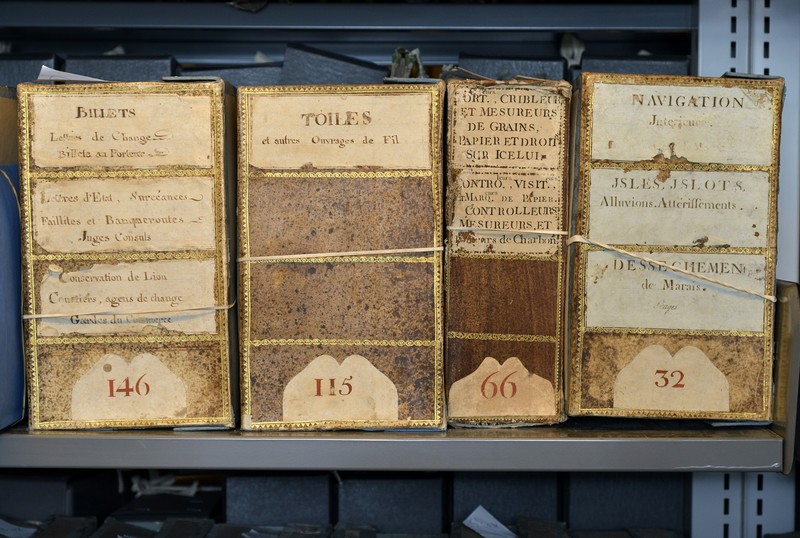 BILLETS
Lettres de Change
Billets au Porteur
Lettres d'Etat, Surcéances
Faillites et Banqueroutes
Juges Consuls
Conservation de Lion
Courtiers, agens de change
Gardes du Commerce
146
TOILES
et autres Ouvrages de Fil
115
PORT., CRIBLEURS
ET MESUREURS
DE GRAINS,
PAPIER ET DROIT
SUR ICELUI.
CONTRO., VISIT.,
MARQ. DE PAPIER.
CONTROLLEURS
MESUREURS, ET
de Charbon
66
NAVIGATION
Interieure.
JSLES, JSLOTS,
Alluvions. Attérissements.
DESSECHEMENT
de Marais.
32